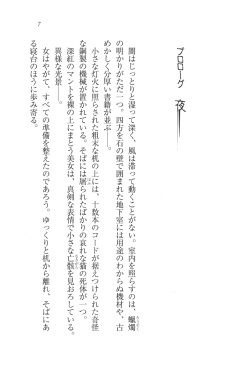 7
プロローグ 夜
闇はじっとりと湿って深く、風は滞って動くことがない。室内を照らすのは、蠟燭
の明かりがただ一つ。四方を石の壁で囲まれた地下室には用途のわからぬ機材や、古
めかしく分厚い書籍が並ぶ――。
小さな灯火に照らされた粗末な机の上には、十数本のコードが据えつけられた奇怪
な銅製の機械が置かれている。そばには屠られたばかりの哀れな猫の死体が一つ。
深紅のマントを裸の上にまとう美女は、真剣な表情で小さな亡骸を見おろしている。
異様な光景――。
女はやがて、すべての準備を整えたのであろう。ゆっくりと机から離れ、そばにあ
る寝台のほうに歩み寄る。